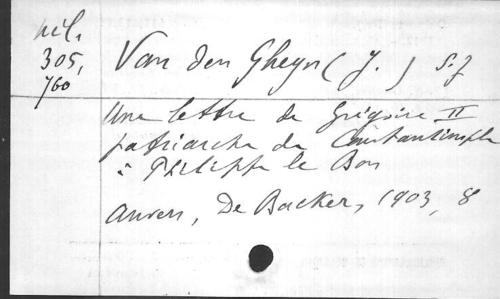 305,
760
Van den Gheyn (J.) S. J
Une lettre de Grégoire II
patriarche de Constantinople
à Philippe le Bon
Anvers, De Backer, 1903, 8